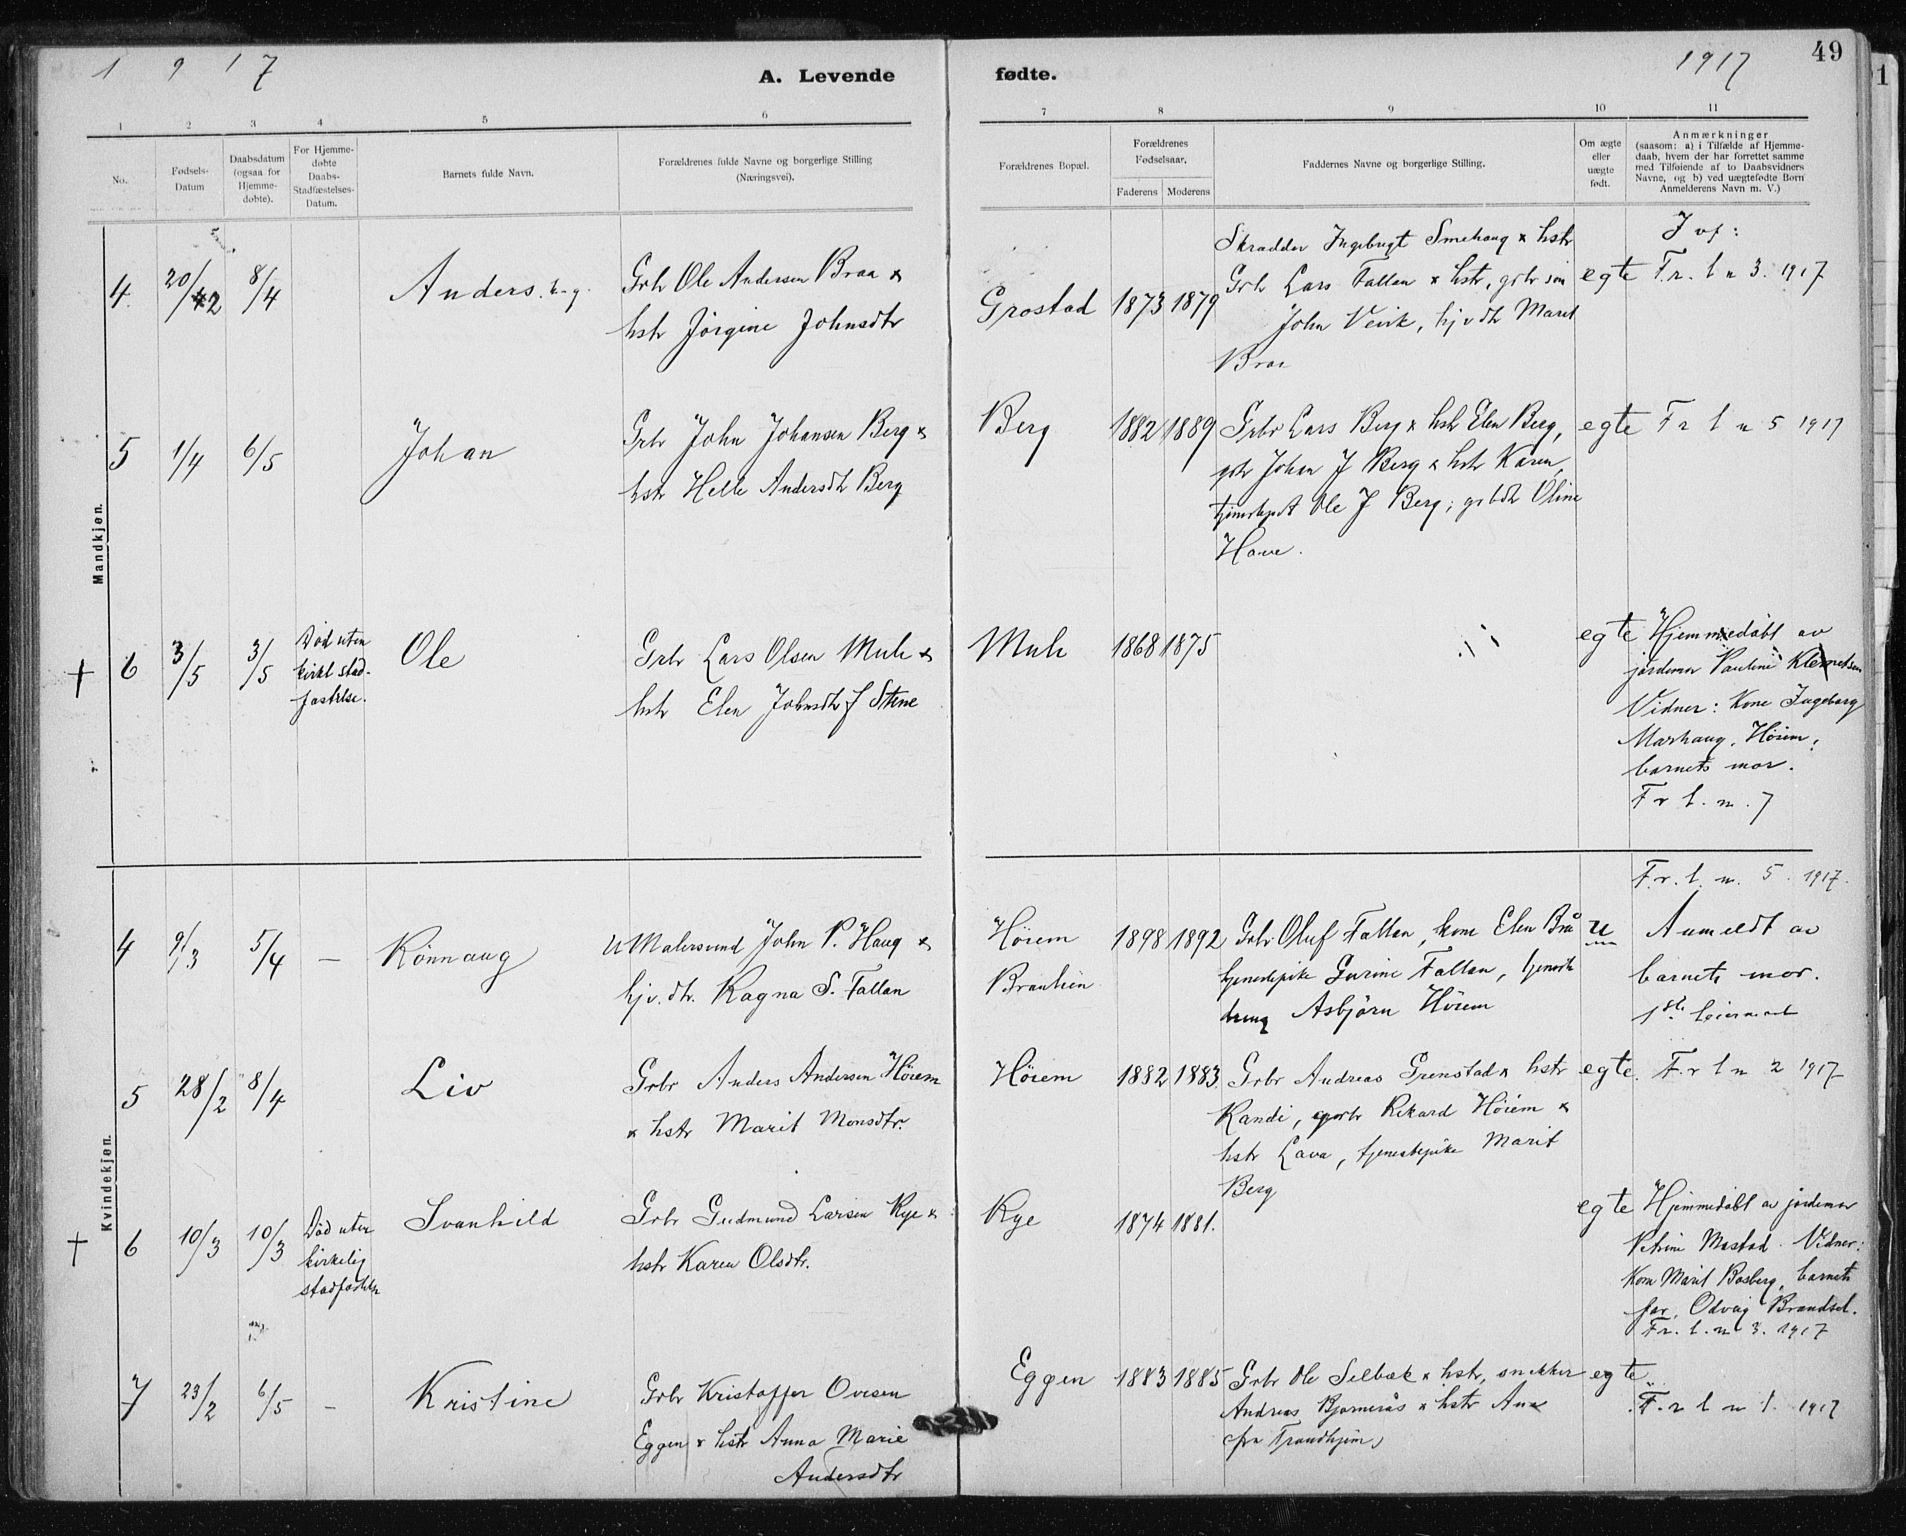 1917
A. Levende
fødte.
1917
49
1 2 3 4 5 6 7 8 9 10 11
No.
Fødsels-
Datum
Daabsdatum
(ogsaa for
Hjemme-
døbte).
For Hjemme-
døbte
Daabs-
Stadfæstelses-
Datum.
Barnets fulde Navn.
Forældrenes fulde Navne og borgerlige Stilling
(Næringsvei).
Forældrenes Bopæl.
Forældrenes
Fødselsaar.
Faderens Moderens
Faddernes Navne og borgerlige Stilling.
Om ægte
eller
uægte
født.
Anmærkninger
(saasom: a) i Tilfælde af Hjemme-
daab, hvem der har forrettet samme
med Tilføiende af to Daabsvidners
Navne, og b) ved uægtefødte Børn
Anmelderens Navn m. V.)
Mandkjøn.
4 20/2 8/4
Anders
Grbr Ole Andersen Braa &
hstr Jørgine Johnsdtr
Grostad 1873 1879
Skradder Ingebrigt Smehaug & hstr
Grbr Lars Fallan & hstr, grbr søn
John Veiik, hjv dtr Marit
Braa
egte
Fr. l n 3. 1917
5 1/4 6/5
Johan
Grbr John Johansen Berg &
hstr Helle Andersdtr Berg
Berg 1882 1889
Grbr Lars Berg & hstr Elen Berg,
grbr Johan J Berg & hstr Karen,
Ole J Berg, Oline
egte
Fr l n 5 1917
† 6 3/5 3/5
Død uten
kirkl stad-
fæstelse.
Ole
Grbr Lars Olsen Muh &
hstr Elen Johnsdtr f Stene
Muh 1868 1875
egte
Hjemmedøbt av
jordemor Pauline Klemetsen
Vidner: Kone Ingeborg
Marhaug, Høiem,
barnets mor.
Fr l. n. 7
Kvindekjøn.
4 9/3 5/4 –
Rønnaug
U Malersvend John P. Haug &
hjv. dtr. Ragna S. Fallan
Høiem
1898 1892
Grbr Oluf Fallan, kone Elen Brå
tjenestepike Gurine Fallan, tjeneste
dreng Asbjørn Høiem
u
Fr. l. n. 5. 1917.
Anmeldt av
barnets mor.
1ste leiermaal
5 28/2 8/4
Liv
Grbr Anders Andersen Høiem
& hstr Marit Monsdtr.
Høiem 1882 1883
Grbr Andreas Grenstad & hstr
Randi, grbr Rikard Høiem &
hstr Lava, tjenestepike Marit
Berg
egte.
F. r l n 2 1917
† 6 10/3 10/3
Død uten
kirkelig
stadfæstelse
Svanhild
Grbr Gudmund Larsen Rye &
hstr Karen Olsdtr.
Rye 1874 1881.
egte
Hjemmedøbt av jordemor
Petrine Mostad. Vidner:
Kone Marit Bosberg, barnets
far, Odveig Brandsel.
Fr. l. n 3. 1917
7 23/2 6/5 –
Kristine
Grbr Kristoffer Ovesen
Eggen & hstr Anna Marie
Andersdtr
Eggen 1883 1885
Grbr Ole Selbæk & hstr, snekker
Andreas Bjørnerås & hstr Ana
fra Trondhjem
egte
F. r l n 1. 1917